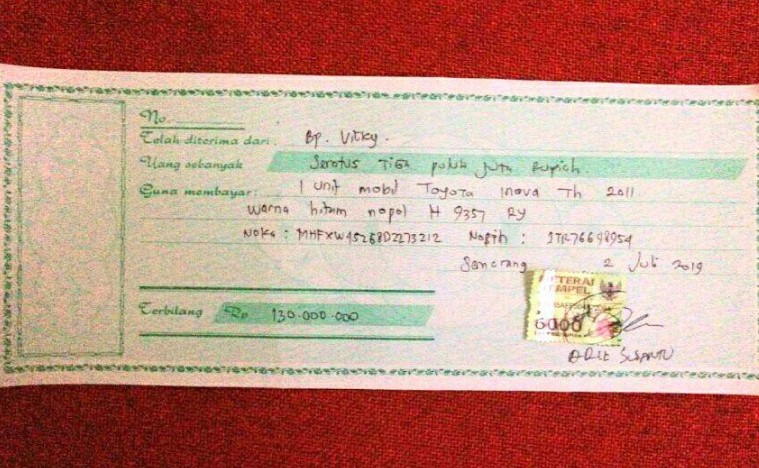 No.
Telah diterima dari : Bp. Vicky.
Uang sebanyak Seratus Tiga puluh juta Rupiah.
Guna membayar : 1 Unit mobil Toyota Inova Th 2011
Warna hitam nopol H 9357 RY
Noka : Nosin :
Semarang 2 Juli 2019
METERAI
TEMPEL
Terbilang Rp 130.000.000
6000